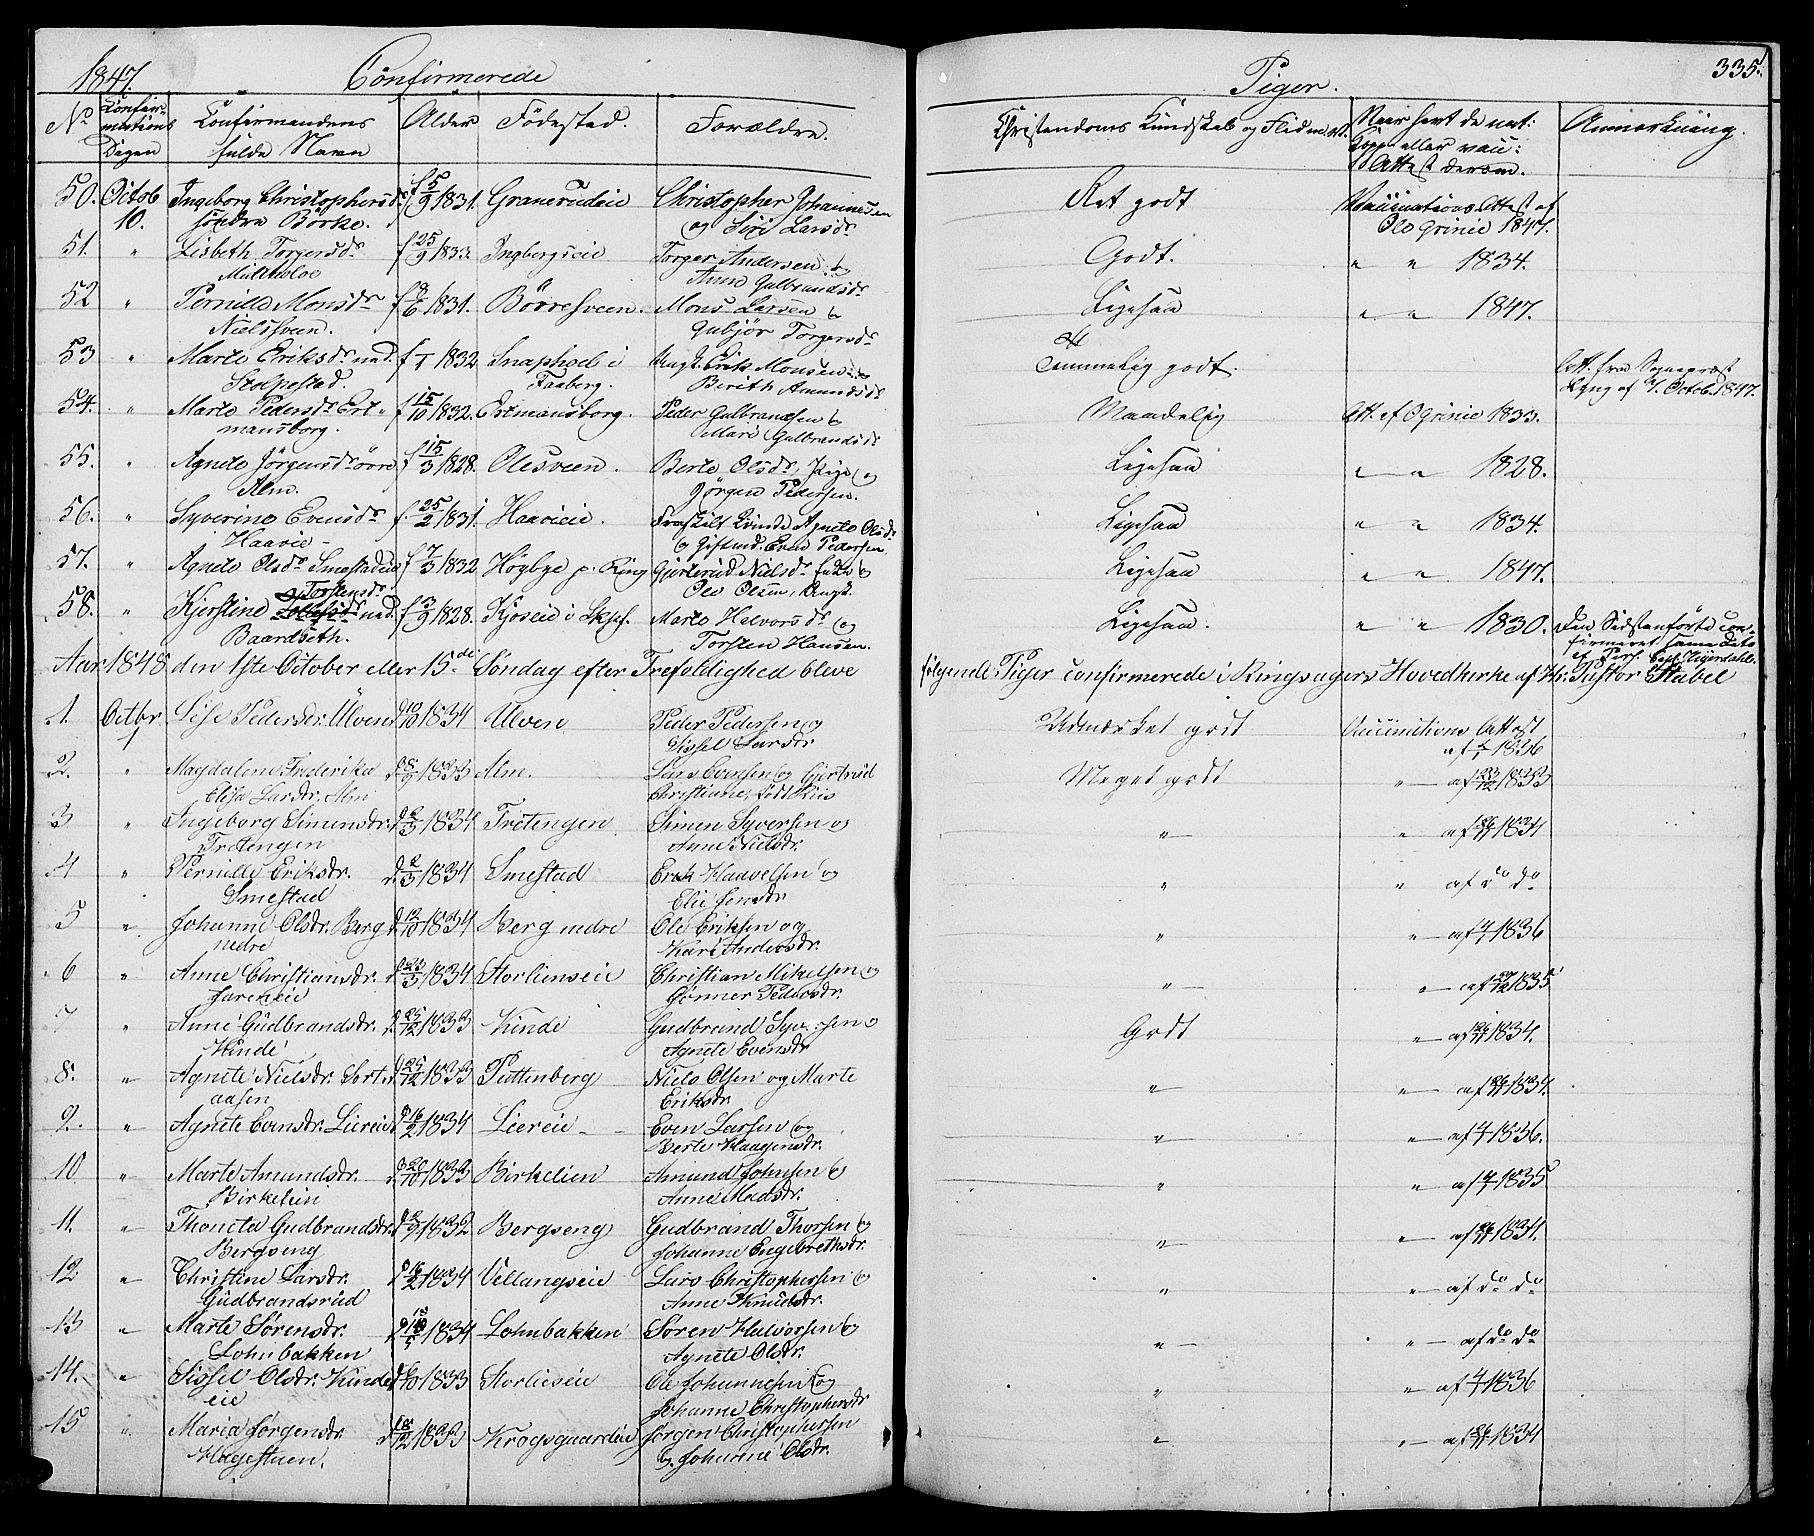 1847. Confirmerede Piger. 335.
No Confirmations Dagen Confirmandens fulde Navn Alder Födested. Forældre. Christendoms Kundskab og Flid m.v. Naar havt de nat: Kopper eller vacc: Attest derom. Anmærkning.
50. Octob 10. Ingeborg Christophersdr söndre Börke. f 5/9 1831. Granerudeie Christopher Johannesen og Siri Larsdr Ret godt Vaccinations Attest af Ole Grinie 1847.
51. " Lisbeth Torgersdr f 25/9 1833. Ingbergseie Torger Andersen og Anne Gulbrandsdr Godt. " " 1834.
52 " Pernille Monsdr Nielssveen. 1831. Börresveen. Mons Larsen og Gubjör Torgersdr Ligesaa " " 1847.
53 " Marte Eriksdr ned. Stolpestad. 1832 Snaphoel i Faaberg. Ungk. Erik Monsen og Berith Amundsdr Temmelig godt. Att. fra Sogneprest Octob. 1847.
54. " Marte Pedersdr Ertmansborg. f 15/10 1832. Ertmansborg. Peder Gulbrandsen og Mari Gulbrandsdr Maadelig Att. af O Grinie 1833.
55. " Agnete Jörgensdr övre Alm. f 15/3 1828. Olesveen. Berte Olsdr, Pige og Jörgen Pedersen. Ligesaa " " 1828.
56. " Syverine Evensdr Haavie f 25/2 1831. Haavieie. Fraskilt Kvinde Agnete Olsdr og Giftmd. Even Pedersen Ligesaa " " 1834.
57. " Agnete Olsdr Smestadeie f 7/3 1832 Högbye p. Ring Gjertrud Nielsdr Enke og Ole Olsen, Ungk. Ligesaa " " 1847.
58. " Kjerstine Torstensdr ned. Baardseth. f 3/9 1828. Marte Halvorsdr og Torsten Hansen. Ligesaa. " " 1830. Den Sidstanförte confirmeret samme Dato
Aar 1848 den 1ste October eller 15de Söndag efter Trefoldighed bleve følgende Piger confirmerede i Ringsagers Hovedkirke af Hr. Pastor Stabel
1. Octbr 1 Lise Pedersdr. Ulven 1834 Ulven Peder Pedersen og Sissel Larsdr Udmærket godt Vaccinations Attest af 4/7 1836
2. " Magdalene Frederika Elisa Larsdr. Alm d. 8/9 1833 Alm. Lars Evensen og Gjertrud Christiane, født Kiis Meget godt " — af 23/12 1833
3 " Ingeborg Simensdr. Trætengen d. 2/3 1834 Trætengen Simen Syversen og Anne Nielsdr. " " af 26/11 1834
4 " Pernille Eriksdr. Smestad d. 2/3 1834 Smestad Erik Haavelsen og Elie Jensdr " " — af do do
5 " Johanne Olsdr. Berg nedre d. 12/10 1834 Berg nedre Ole Eriksen og Kari Andersdr. " " — af 4/7 1836
6 " Anne Christiansdr. d. 23/3 1834 Storlienseie Christian Mikelsen og Gønner Pedersdr. " " — af 1835
7 " Anne Gudbrandsdr. Kinde d. 25/12 1833 Kinde Gudbrand Syversen og Agnete Evensdr Godt " — af 26/11 1834.
8. " Agnete Nielsdr. Sorteraasen d. 25/12 1833 Puttenberg Niels Olsen og Marte Eriksdr. " " — af 26/11 1834.
9. " Agnete Evensdr. Liereie d. 16/2 1834 Liereie Even Larsen og Berte Haagensdr. " " — af 4/7 1836.
10 " Marte Amundsdr. Birkelien d. 20/10 1833 Birkelien Amund Johnsen og Anne Madsdr. " " — af 1835
11. " Thoneta Gudbrandsdr. Bergseng 1832 Bergseng Gudbrand Thorsen og Johanne Engebrethsdr. " " — af 26/11 1834.
12. " Christine Larsdr. Gudbrandsrud d. 16/2 1834 Vellangseie Lars Christophersen og Anne Knudsdr. " " — af do do
13 " Marte Sørensdr. Lohnbakken 1834 Lohnbakken Søren Halvorsen og Agnete Olsdr. " " — af do do
14. " Sissel Olsdr. Kindeeie 1833 Storlieseie Ole Johannesen og Johanne Christophersdr " " — af 4/7 1836
15 " Maria Jørgensdr. Hagestuen. 1833 Krogsgaardeie Jørgen Christophersen og Johanne Olsdr. " " — af 26/11 1834